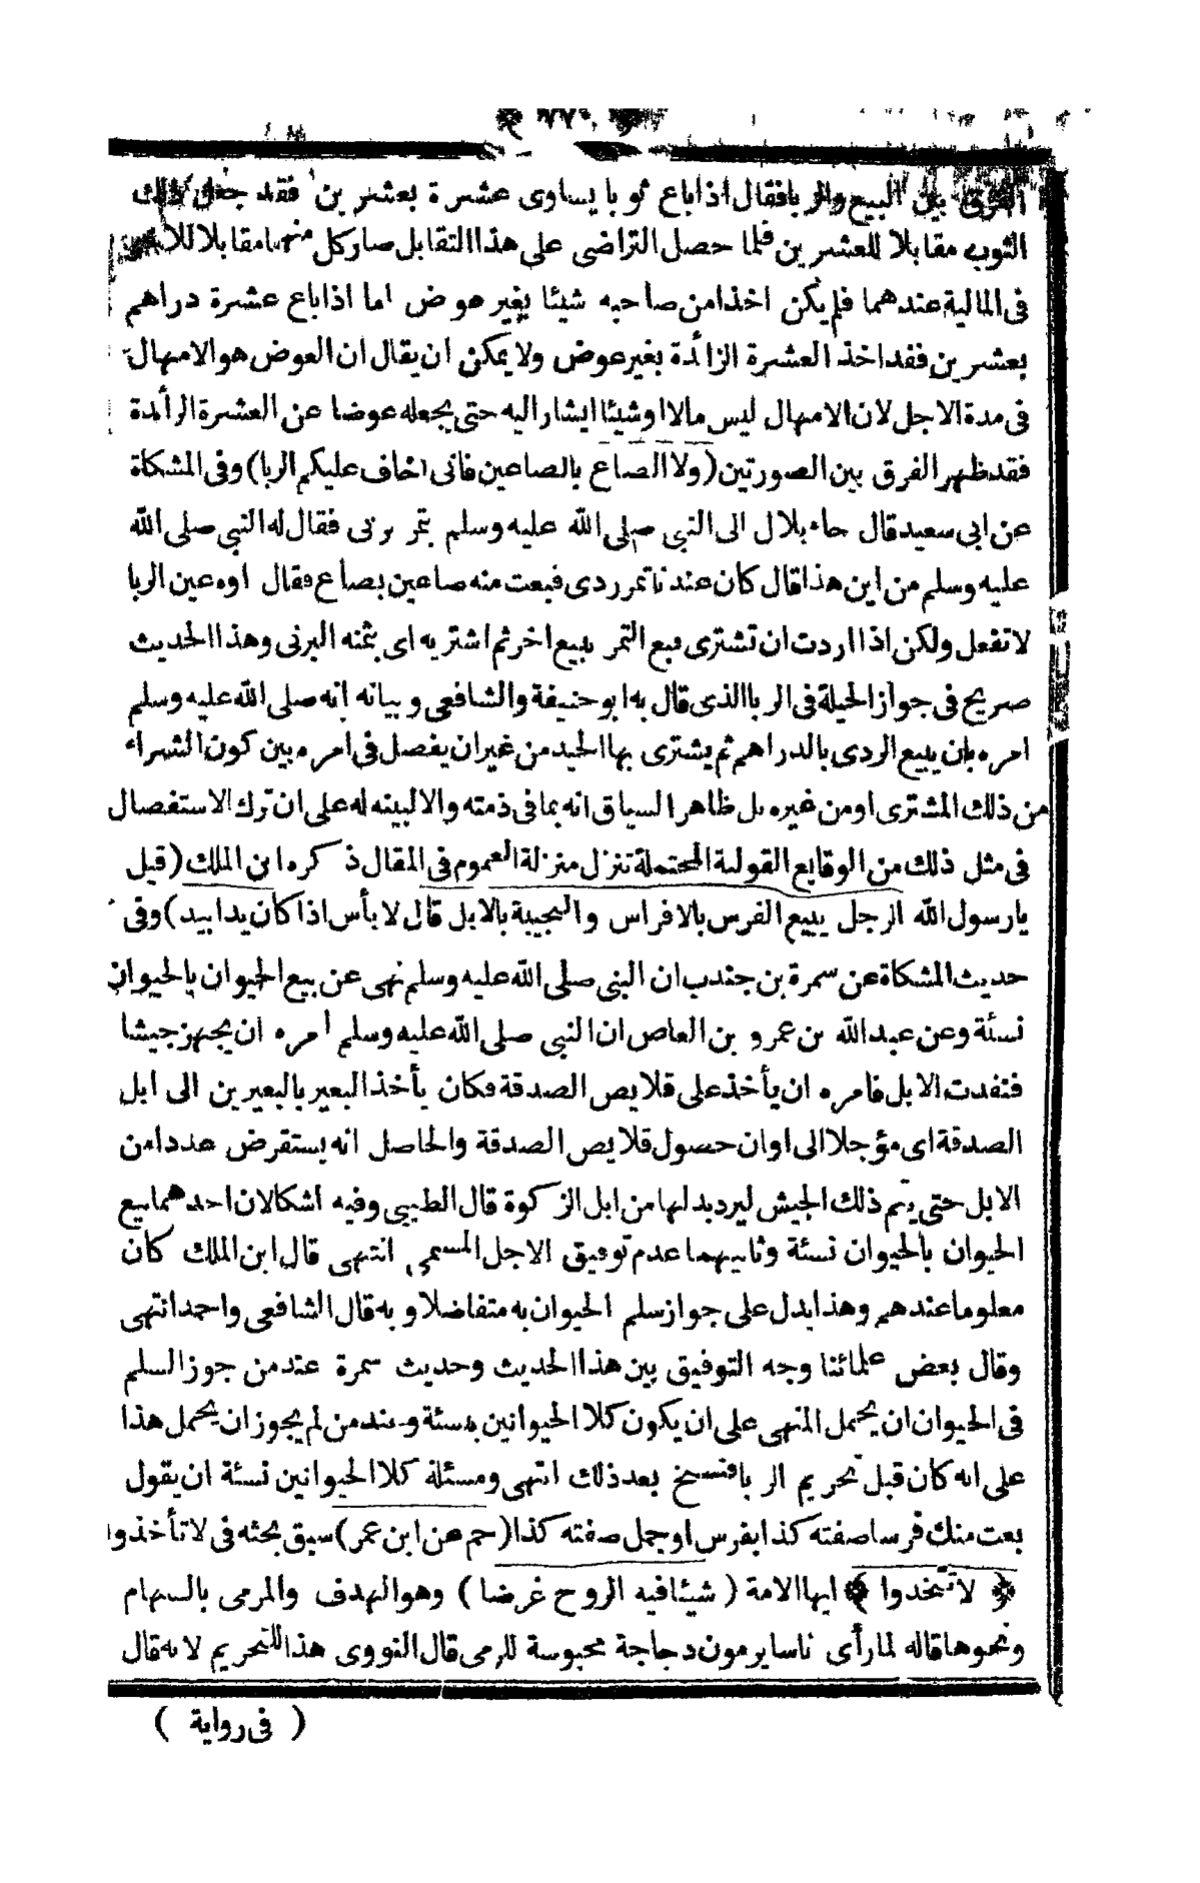 ﴿ ٧٧٠ ﴾
الفرق بين البيع والربا فقال اذا باع ثوبا يساوى عشرة بعشرين فقد جعل ذلك
الثوب مقابلا للعشرين فلما حصل التراضى على هذا التقابل صار كل منهما مقابلا للآخر
فى المالية عندهما فلم يكن اخذا من صاحبه شيئا بغير عوض اما اذا باع عشرة دراهم
بعشرين فقد اخذ العشرة الزائدة بغير عوض ولا يمكن ان يقال ان العوض هو الامهال
فى مدة الاجل لان الامهال ليس مالا او شيئا ايشار اليه حتى يجعله عوضا عن العشرة الزائدة
فقد ظهر الفرق بين الصورتين (ولا الصاع بالصاعين فانى اخاف عليكم الربا) وفى المشكاة
عن ابى سعيد قال جاء بلال الى النبى صلى الله عليه وسلم بتمر برنى فقال له النبى صلى الله
عليه وسلم من اين هذا قال كان عندنا تمر ردى فبعت منه صاعين بصاع فقال اوه عين الربا
لا تفعل ولكن اذا اردت ان تشترى فبع التمر ببيع اخر ثم اشتر به اى بثمنه البرنى وهذا الحديث
صريح فى جواز الحيلة فى الربا الذى قال به ابو حنيفة والشافعى وبيانه انه صلى الله عليه وسلم
امره بان يبيع الردى بالدراهم ثم يشترى بها الجيد من غير ان يفصل فى امره بين كون الشراء
من ذلك المشترى او من غيره بل ظاهر السياق انه بما فى ذمته والا لبينه له على ان ترك الاستفصال
فى مثل ذلك من الوقايع القولية المحتملة تنزل منزلة العموم فى المقال ذكره ابن الملك (قيل
يا رسول الله الرجل يبيع الفرس بالافراس والنجيبة بالابل قال لا بأس اذا كان يدا بيد) وفى
حديث المشكاة عن سمرة بن جندب ان النبى صلى الله عليه وسلم نهى عن بيع الحيوان بالحيوان
نسئة وعن عبد الله بن عمرو بن العاص ان النبى صلى الله عليه وسلم أمره ان يجهز جيشا
فنفدت الابل فامره ان يأخذ على قلايص الصدقة فكان يأخذ البعير بالبعيرين الى ابل
الصدقة اى مؤجلا الى اوان حصول قلايص الصدقة والحاصل انه يستقرض عددا من
الابل حتى يتم ذلك الجيش ليرد بدلها من ابل الزكوة قال الطيبى وفيه اشكالان احدهما بيع
الحيوان بالحيوان نسئة وثانيهما عدم توفيق الاجل المسمى انتهى قال ابن الملك كان
معلوما عندهم وهذا يدل على جواز سلم الحيوان به متفاضلا وبه قال الشافعى واحمد انتهى
وقال بعض علمائنا وجه التوفيق بين هذا الحديث وحديث سمرة عند من جوز السلم
فى الحيوان ان يحمل النهى على ان يكون كلا الحيوانين نسئة وعند من لم يجوز ان يحمل هذا
على انه كان قبل تحريم الربا فنسخ بعد ذلك انتهى ومسئلة كلا الحيوانين نسئة ان يقول
بعت منك فرسا صفته كذا بفرس او جمل صفته كذا (حم عن ابن عمر) سبق بحثه فى لا تأخذوا
﴿ لا تتخدوا ﴾ ايها الامة ( شيئا فيه الروح غرضا ) وهو الهدف والمرمى بالسهام
ونحوها قاله لما رأى ناسا يرمون دجاجة محبوسة للرمى قال النووى هذا للتحريم لانه قال
( فى رواية )